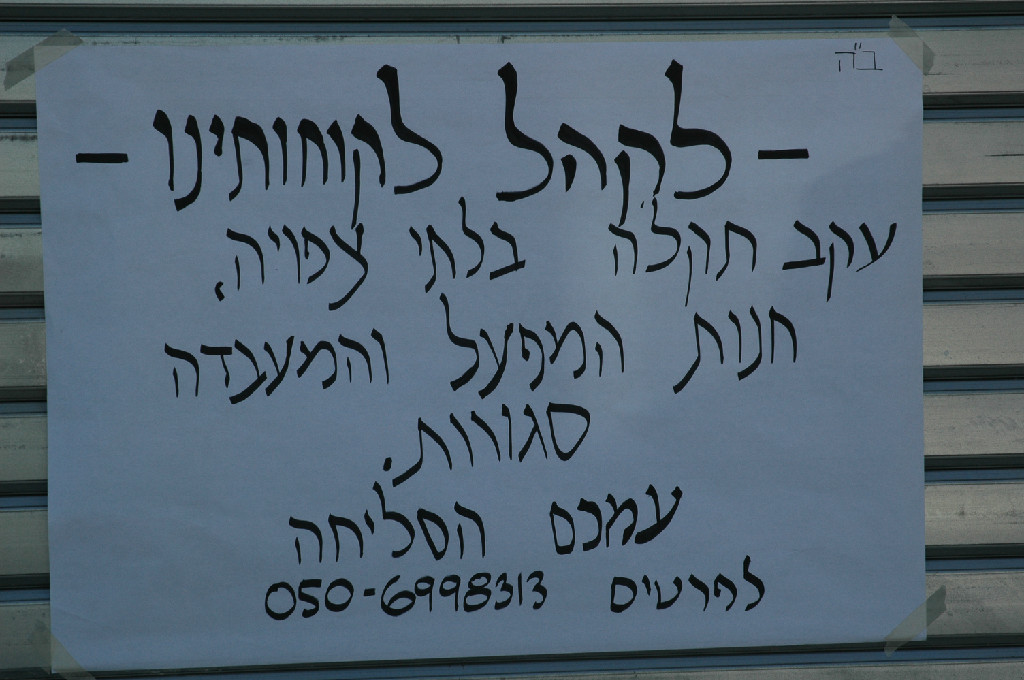 ב"ה
- לקהל לקוחותינו -
עקב תקלה בלתי צפויה,
חנות המפעל והמעבדה
סגורות.
עמכם הסליחה
לפרטים 050-6998313